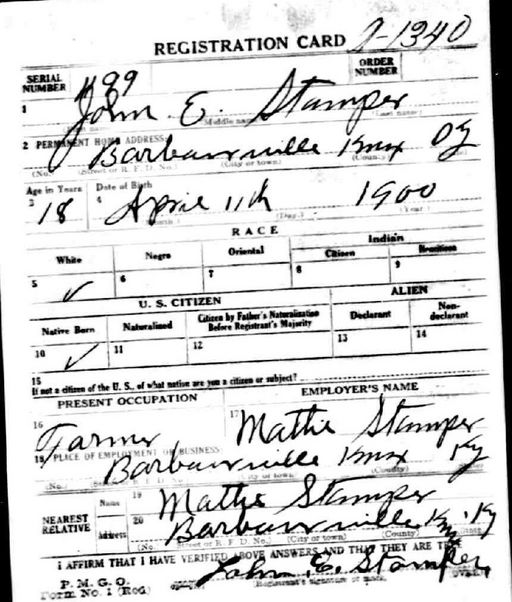 REGISTRATION CARD A-1340
SERIAL NUMBER 499 ORDER NUMBER
1 John E. Stamper
Middle name
2 PERMANENT HOME ADDRESS:
Barbourville Knox Ky
(No.) (Street or R. F. D. No.) (City or town) (County)
Age in Years Date of Birth
3 18 4 April 11th 1900
(Day.) (Year.)
RACE
White Negro Oriental Indian
Citizen Noncitizen
5 ✓ 6 7 8 9
U. S. CITIZEN ALIEN
Native Born Naturalized Citizen by Father's Naturalization Before Registrant's Majority Declarant Non-declarant
10 ✓ 11 12 13 14
15
If not a citizen of the U. S., of what nation are you a citizen or subject?
PRESENT OCCUPATION EMPLOYER'S NAME
16 Farmer 17 Mathie Stamper
18 PLACE OF EMPLOYMENT OR BUSINESS:
Barbourville Knox Ky
(No.) (County)
NEAREST RELATIVE
Name 19 Mathie Stamper
Address 20 Barbourville Knox Ky
(No.) (Street or R. F. D. No.) (City or town) (County)
I AFFIRM THAT I HAVE VERIFIED ABOVE ANSWERS AND THAT THEY ARE TRUE
P. M. G. O.
Form No. 1 (Red) John E. Stamper
(Registrant's signature or mark)